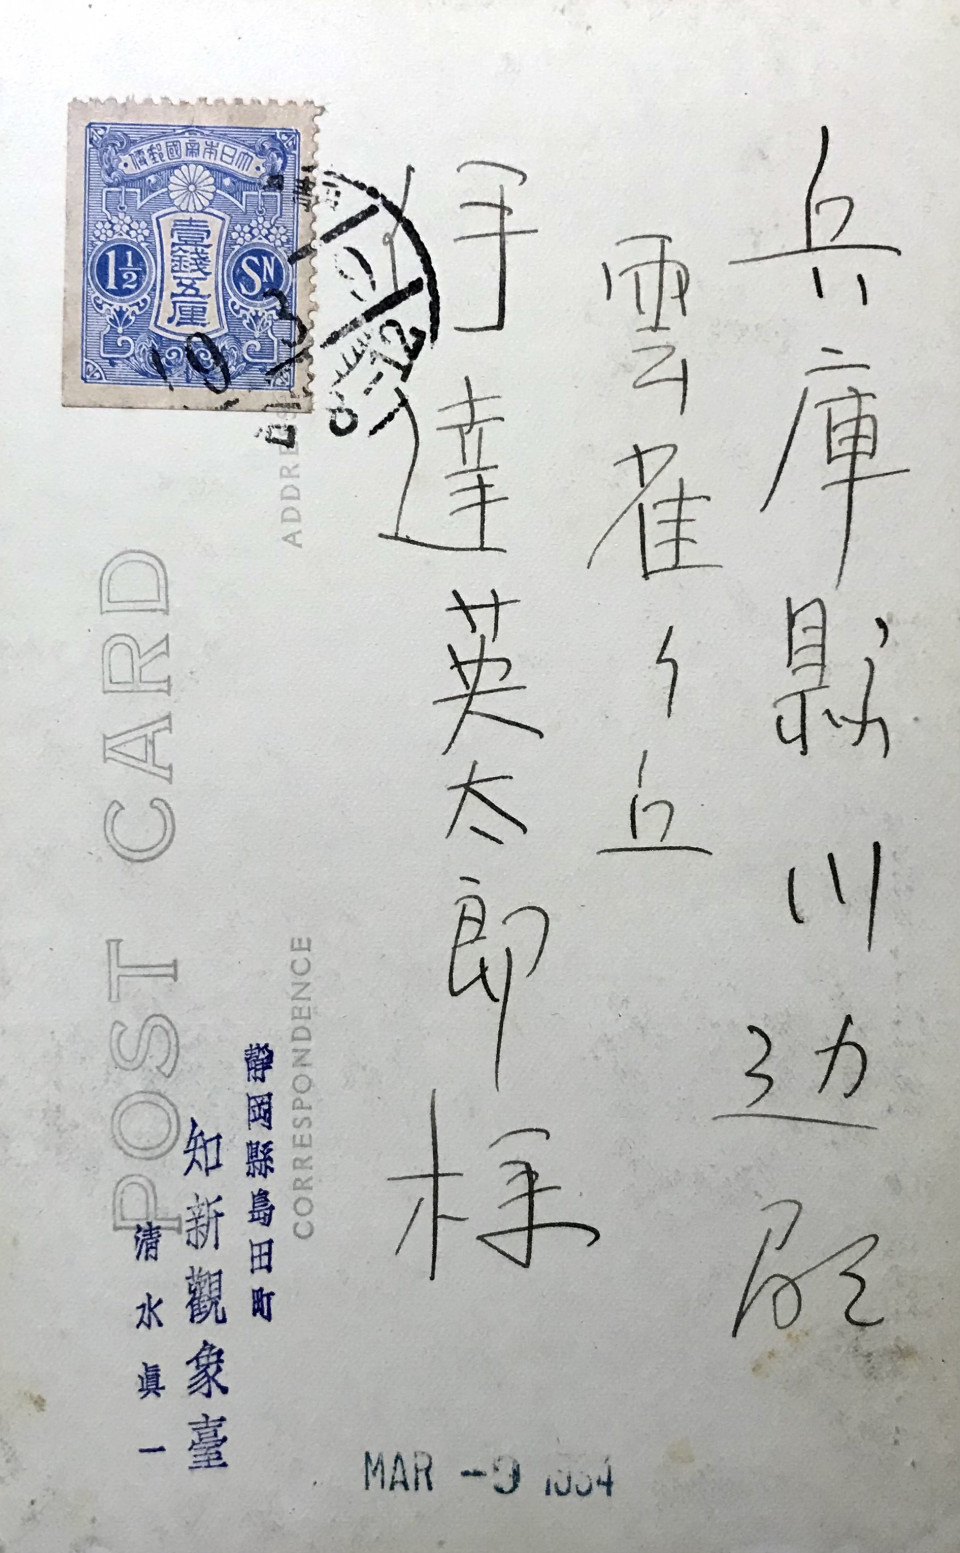 兵庫縣川辺郡
雲雀ケ丘
伊達英太郎様
大日本帝國郵便
壹錢五厘
1½
SN
19
3
POST CARD
ADDRESS
CORRESPONDENCE
靜岡縣島田町
知新觀象臺
清水眞一
MAR -9 1934